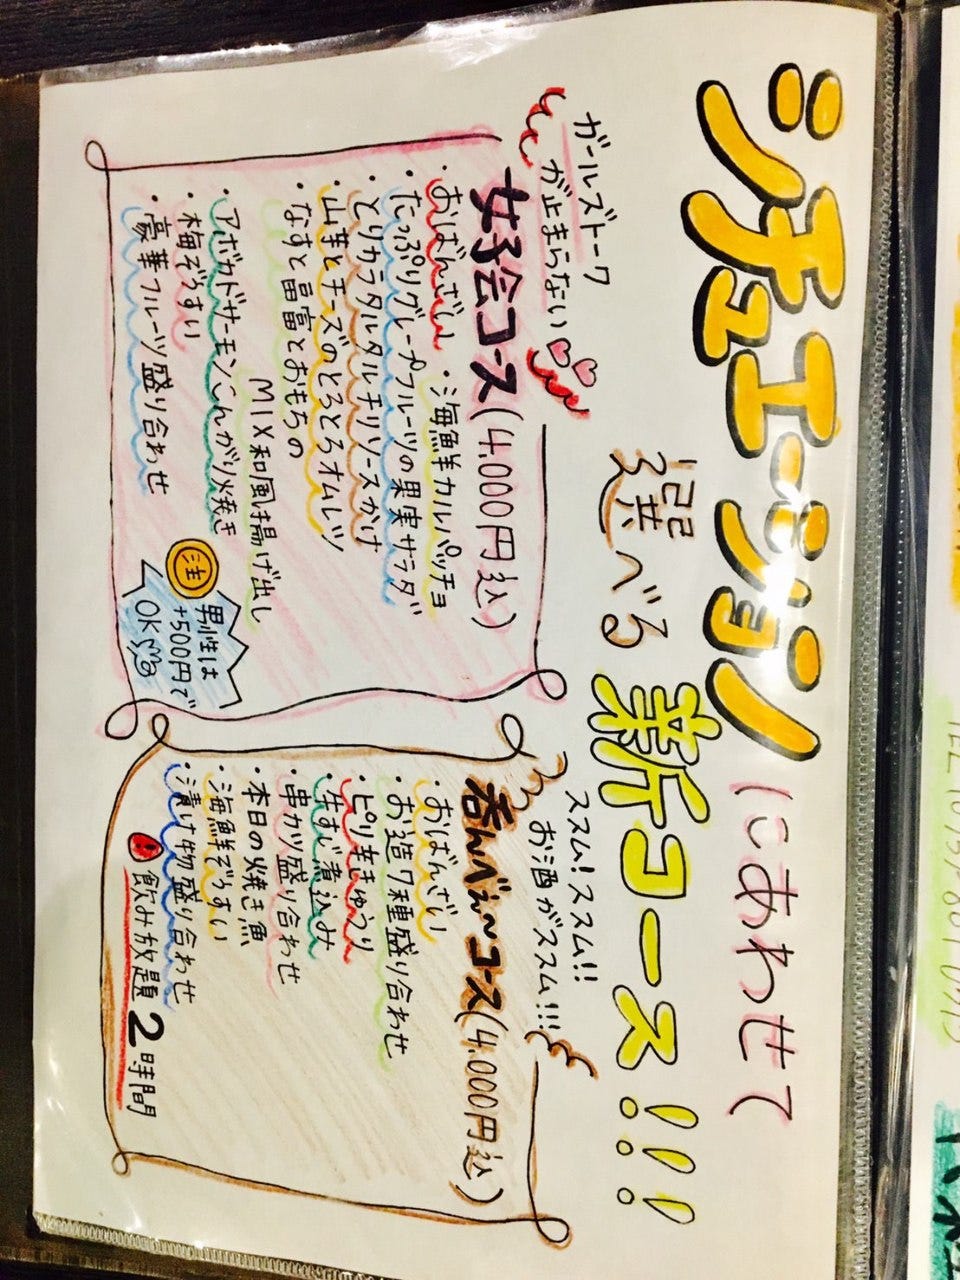 シチュエーションにあわせて
選べる新コース!!!
ガールズトーク
が止まらない
女子会コース(4.000円込)
・おばんざい ・海鮮カルパッチョ
・たっぷりグレープフルーツの果実サラダ
・とりカラタルタルチリソースかけ
・山芋とチーズのとろとろオムレツ
・なすと畠富とおもちの
MIX和風揚げ出し
・アボカドサーモンこんがり焼き
・梅ぞうすい
・豪華フルーツ盛り合わせ
注
男性は
+500円で
OK
ススム!ススム!!
お酒がススム!!!
呑んべぇ〜コース(4.000円込)
・おばんざい
・お造り種盛り合わせ
・ピリ辛きゅうり
・牛すじ煮込み
・串カツ盛り合わせ
・本日の焼き魚
・海鮮ぞうすい
・漬け物盛り合わせ
飲み放題2時間